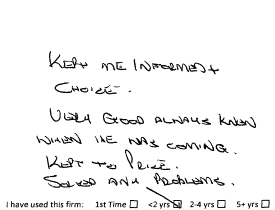 KEPT ME INFORMED +
CHOICE.
VERY GOOD ALWAYS KNEW
WHEN HE WAS COMING.
KEPT TO PRICE.
SOLVED ANY PROBLEMS.
I have used this firm: 1st Time ☐ <2 yrs ☑ 2-4 yrs ☐ 5+ yrs ☐